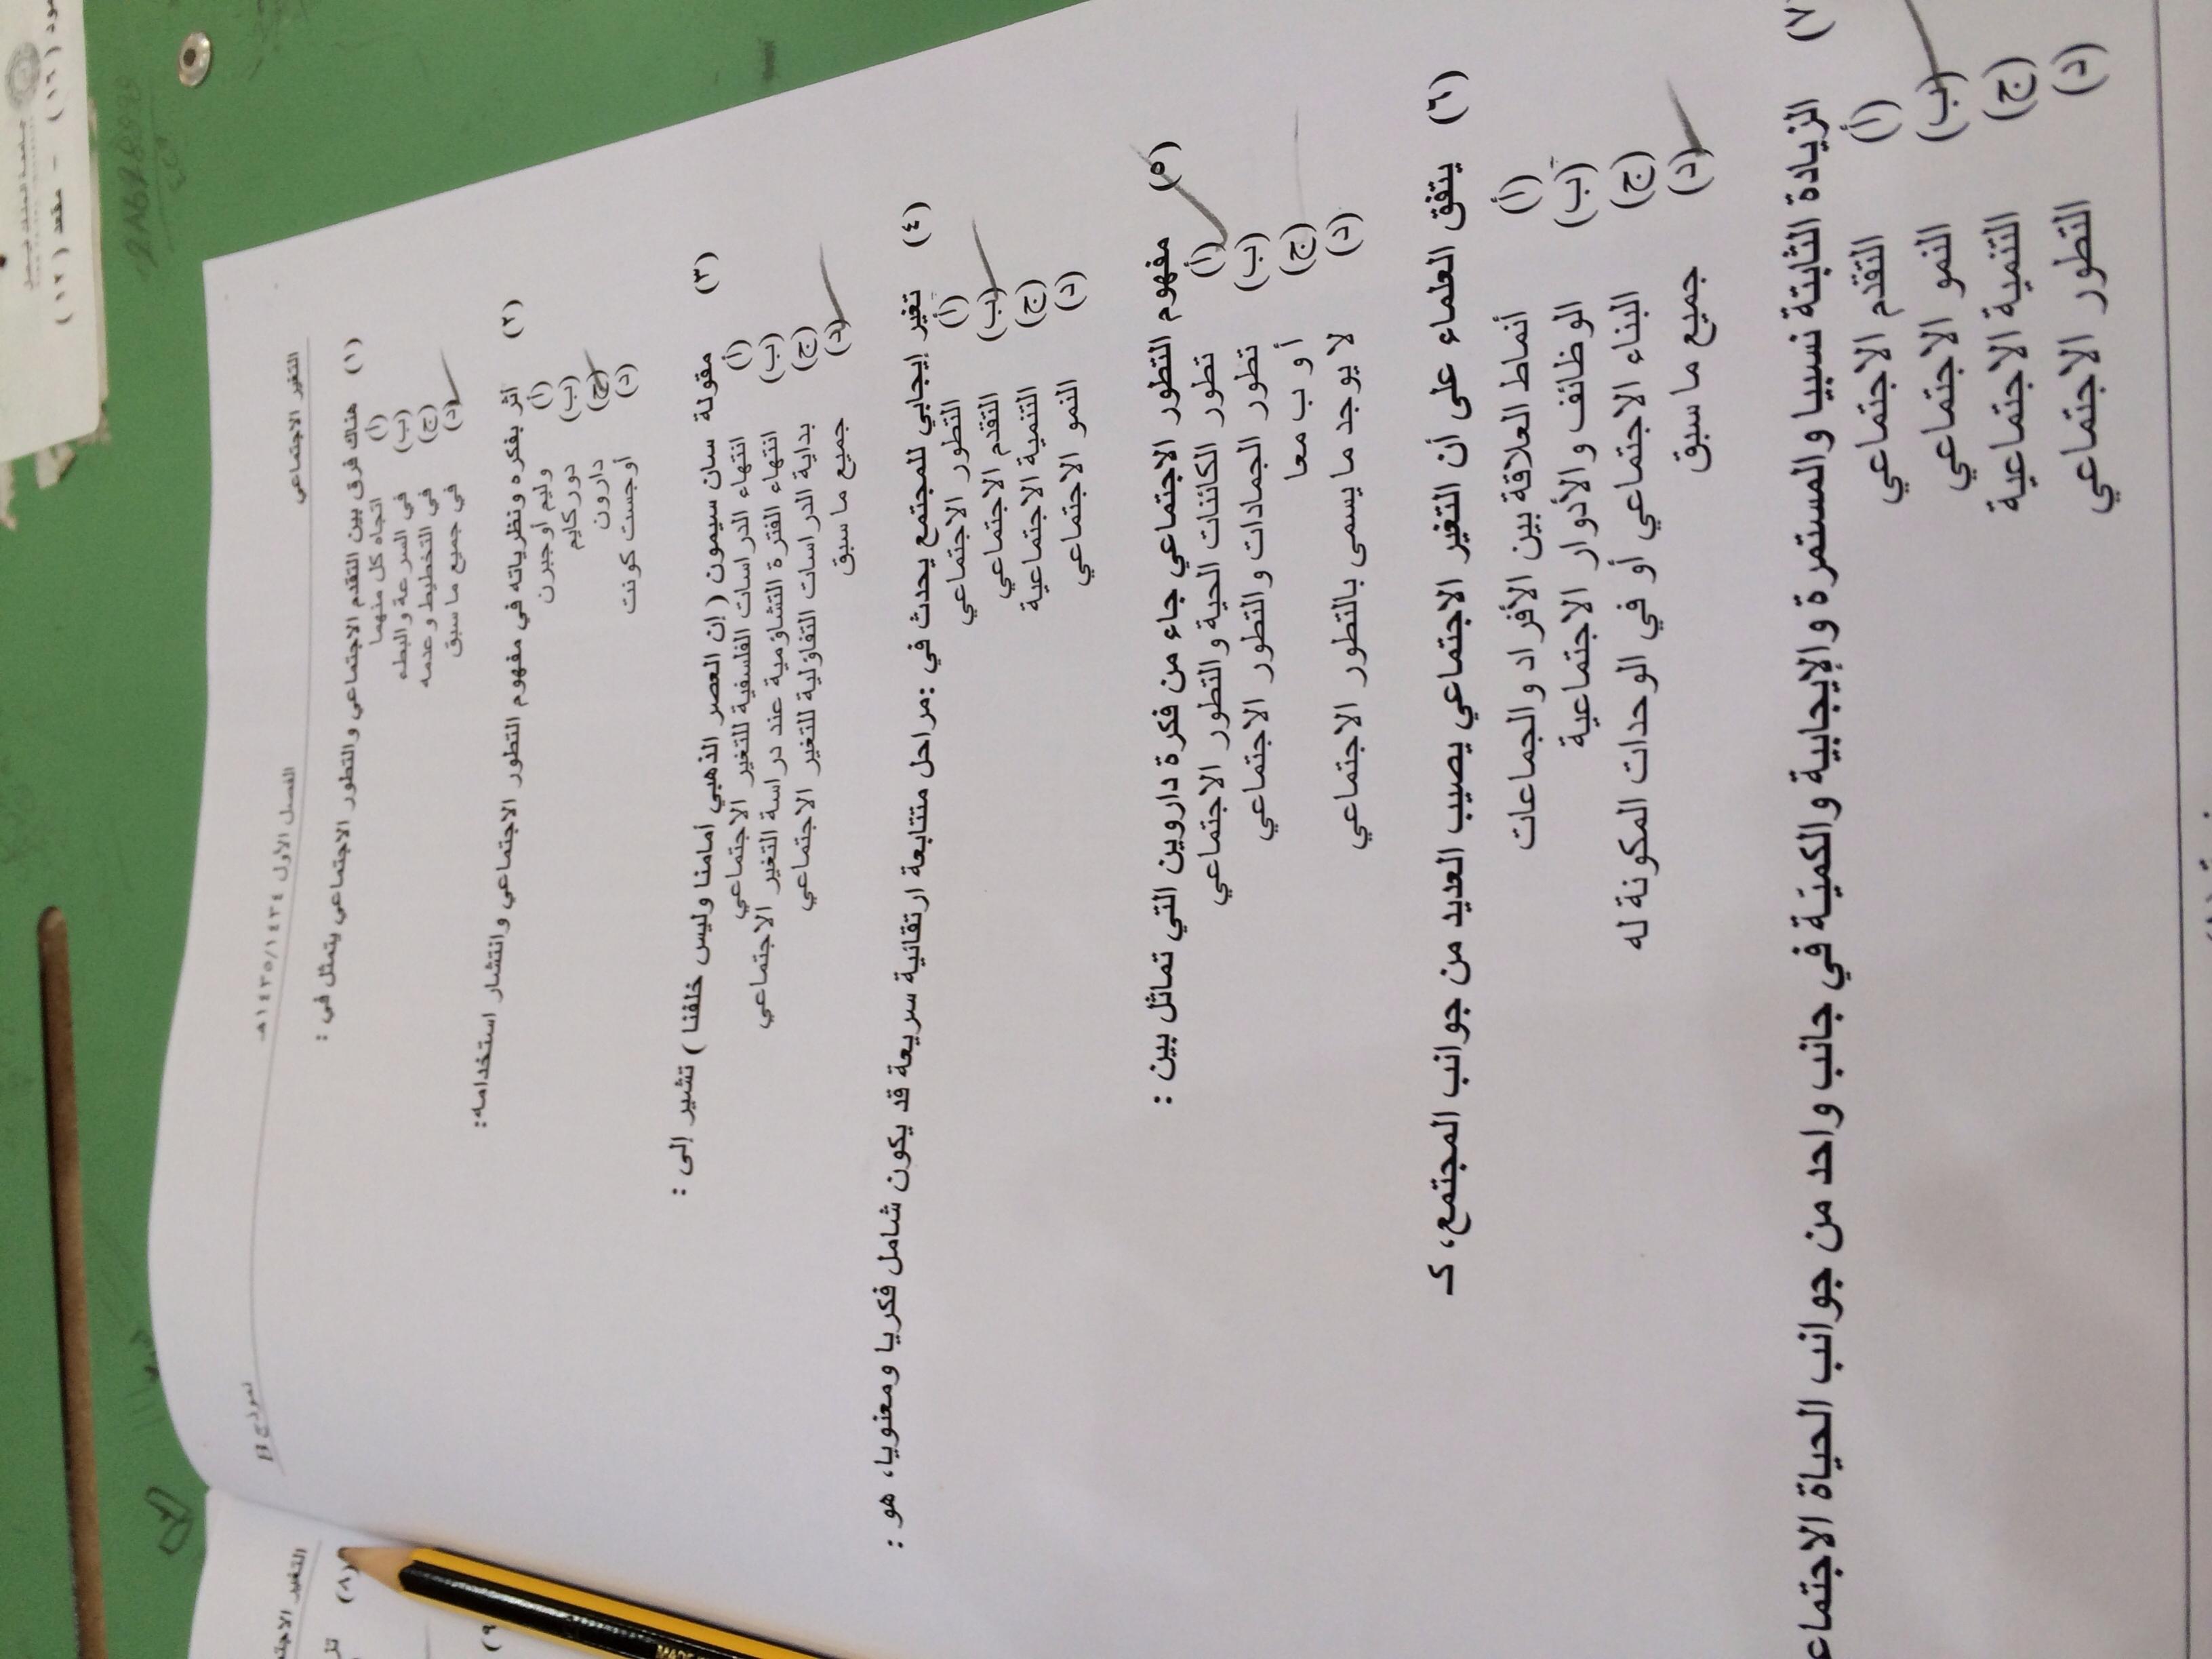 التغير الاجتماعي
الفصل الأول ١٤٣٤/١٤٣٥هـ
نموذج B
(١) هناك فرق بين التقدم الاجتماعي والتطور الاجتماعي يتمثل في :
(أ) اتجاه كل منهما
(ب) في السرعة والبطء
(ج) في التخطيط وعدمه
(د) في جميع ما سبق
(٢) أثر بفكره ونظرياته في مفهوم التطور الاجتماعي وانتشار استخدامه:
(أ) وليم أوجبرن
(ب) دوركايم
(ج) دارون
(د) أوجست كونت
(٣) مقولة سان سيمون ( إن العصر الذهبي أمامنا وليس خلفنا ) تشير إلى :
(أ) انتهاء الدراسات الفلسفية للتغير الاجتماعي
(ب) انتهاء الفترة التشاؤمية عند دراسة التغير الاجتماعي
(ج) بداية الدراسات التفاؤلية للتغير الاجتماعي
(د) جميع ما سبق
(٤) تغير إيجابي للمجتمع يحدث في :مراحل متتابعة ارتقائية سريعة قد يكون شامل فكريا ومعنويا، هو :
(أ) التطور الاجتماعي
(ب) التقدم الاجتماعي
(ج) التنمية الاجتماعية
(د) النمو الاجتماعي
(٥) مفهوم التطور الاجتماعي جاء من فكرة داروين التي تماثل بين :
(أ) تطور الكائنات الحية والتطور الاجتماعي
(ب) تطور الجمادات والتطور الاجتماعي
(ج) أ و ب معا
(د) لا يوجد ما يسمى بالتطور الاجتماعي
(٦) يتفق العلماء على أن التغير الاجتماعي يصيب العديد من جوانب المجتمع، كـ
(أ) أنماط العلاقة بين الأفراد والجماعات
(ب) الوظائف والأدوار الاجتماعية
(ج) البناء الاجتماعي أو في الوحدات المكونة له
(د) جميع ما سبق
(٧) الزيادة الثابتة نسبيا والمستمرة والإيجابية والكمية في جانب واحد من جوانب الحياة الاجتماع
(أ) التقدم الاجتماعي
(ب) النمو الاجتماعي
(ج) التنمية الاجتماعية
(د) التطور الاجتماعي
التغير الاجتم
(٨)
(٩
(١٢) مقعد - (١٦)